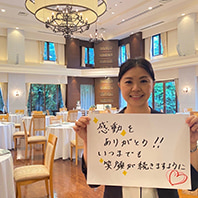 感動を
ありがとう!!
いつまでも
笑顔が続きますように